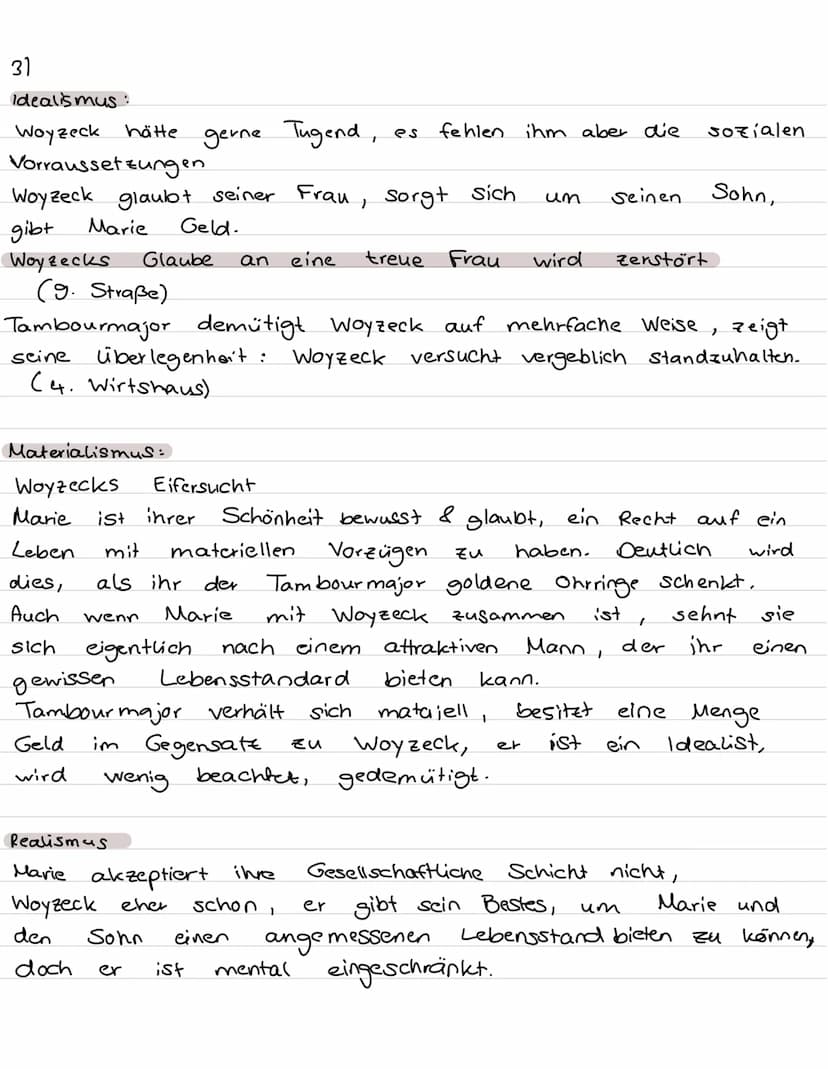 3)
Idealismus:
Woyzeck hätte gerne Tugend, es fehlen ihm aber die sozialen
Vorraussetzungen
Woyzeck glaubt seiner Frau, sorgt sich um seinen Sohn,
gibt Marie Geld.
Woyzecks Glaube an eine treue Frau wird zerstört
(9. Straße)
Tambourmajor demütigt Woyzeck auf mehrfache Weise, zeigt
seine Überlegenheit: Woyzeck versucht vergeblich standzuhalten.
(4. Wirtshaus)
Materialismus:
Woyzecks Eifersucht
Marie ist ihrer Schönheit bewusst & glaubt, ein Recht auf ein
Leben mit materiellen Vorzügen zu haben. Deutlich wird
dies, als ihr der Tambourmajor goldene Ohrringe schenkt.
Auch wenn Marie mit Woyzeck zusammen ist, sehnt sie
sich eigentlich nach einem attraktiven Mann, der ihr einen
gewissen Lebensstandard bieten kann.
Tambourmajor verhält sich matajell, besitzt eine Menge
Geld im Gegensatz zu Woyzeck, er ist ein Idealist,
wird wenig beachtet, gedemütigt.
Realismus
Marie akzeptiert ihre Gesellschaftliche Schicht nicht,
Woyzeck eher schon, er gibt sein Bestes, um Marie und
den Sohn einen angemessenen Lebensstand bieten zu können,
doch er ist mental eingeschränkt.